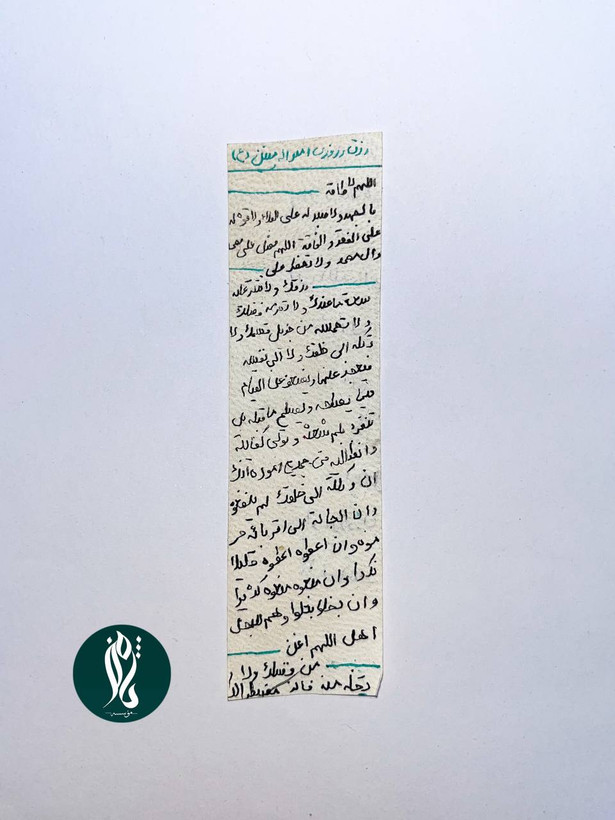 رزق روزی امیر المومنین (ع)
اللهم لا طاقة
علی الفقر و الفاقة اللهم فصل علی محمد
وآل محمد ولا تحظر علی
رزقك ولا تقتر علیه
سعة ما عندك ولا تحرمه فضلك
ولا تحسمه من جزیل قسمك ولا
تكله الی خلقك ولا الی نفسه
فیعجز عنها ویضعف عن القیام
فیما یصلحه و یصلح ما قبله بل
تنفرد بلم شعثه و تولی كفایته
وانظر الیه فی جمیع اموره انك
ان وكلته الی خلقك لم ینفعوه
وان الجأته الی اقربائه حر
موه وان اعطوه اعطوه قلیلا
نكدا وان منعوه منعوه كثیرا
وان بخلوا بخلوا وهم للبخل
اهل اللهم اغن
من فضلك ولا
تخله منه فانه مضطر الا
موسسه